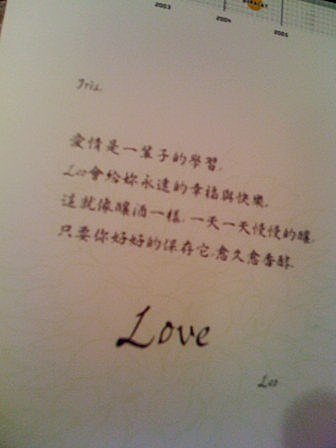 2003
2004
2005
Iris.
愛情是一輩子的學習,
Leo會給妳永遠的幸福與快樂,
這就像釀酒一樣,一天一天慢慢的釀,
只要你好好的保存它,愈久愈香醇.
Love
Leo